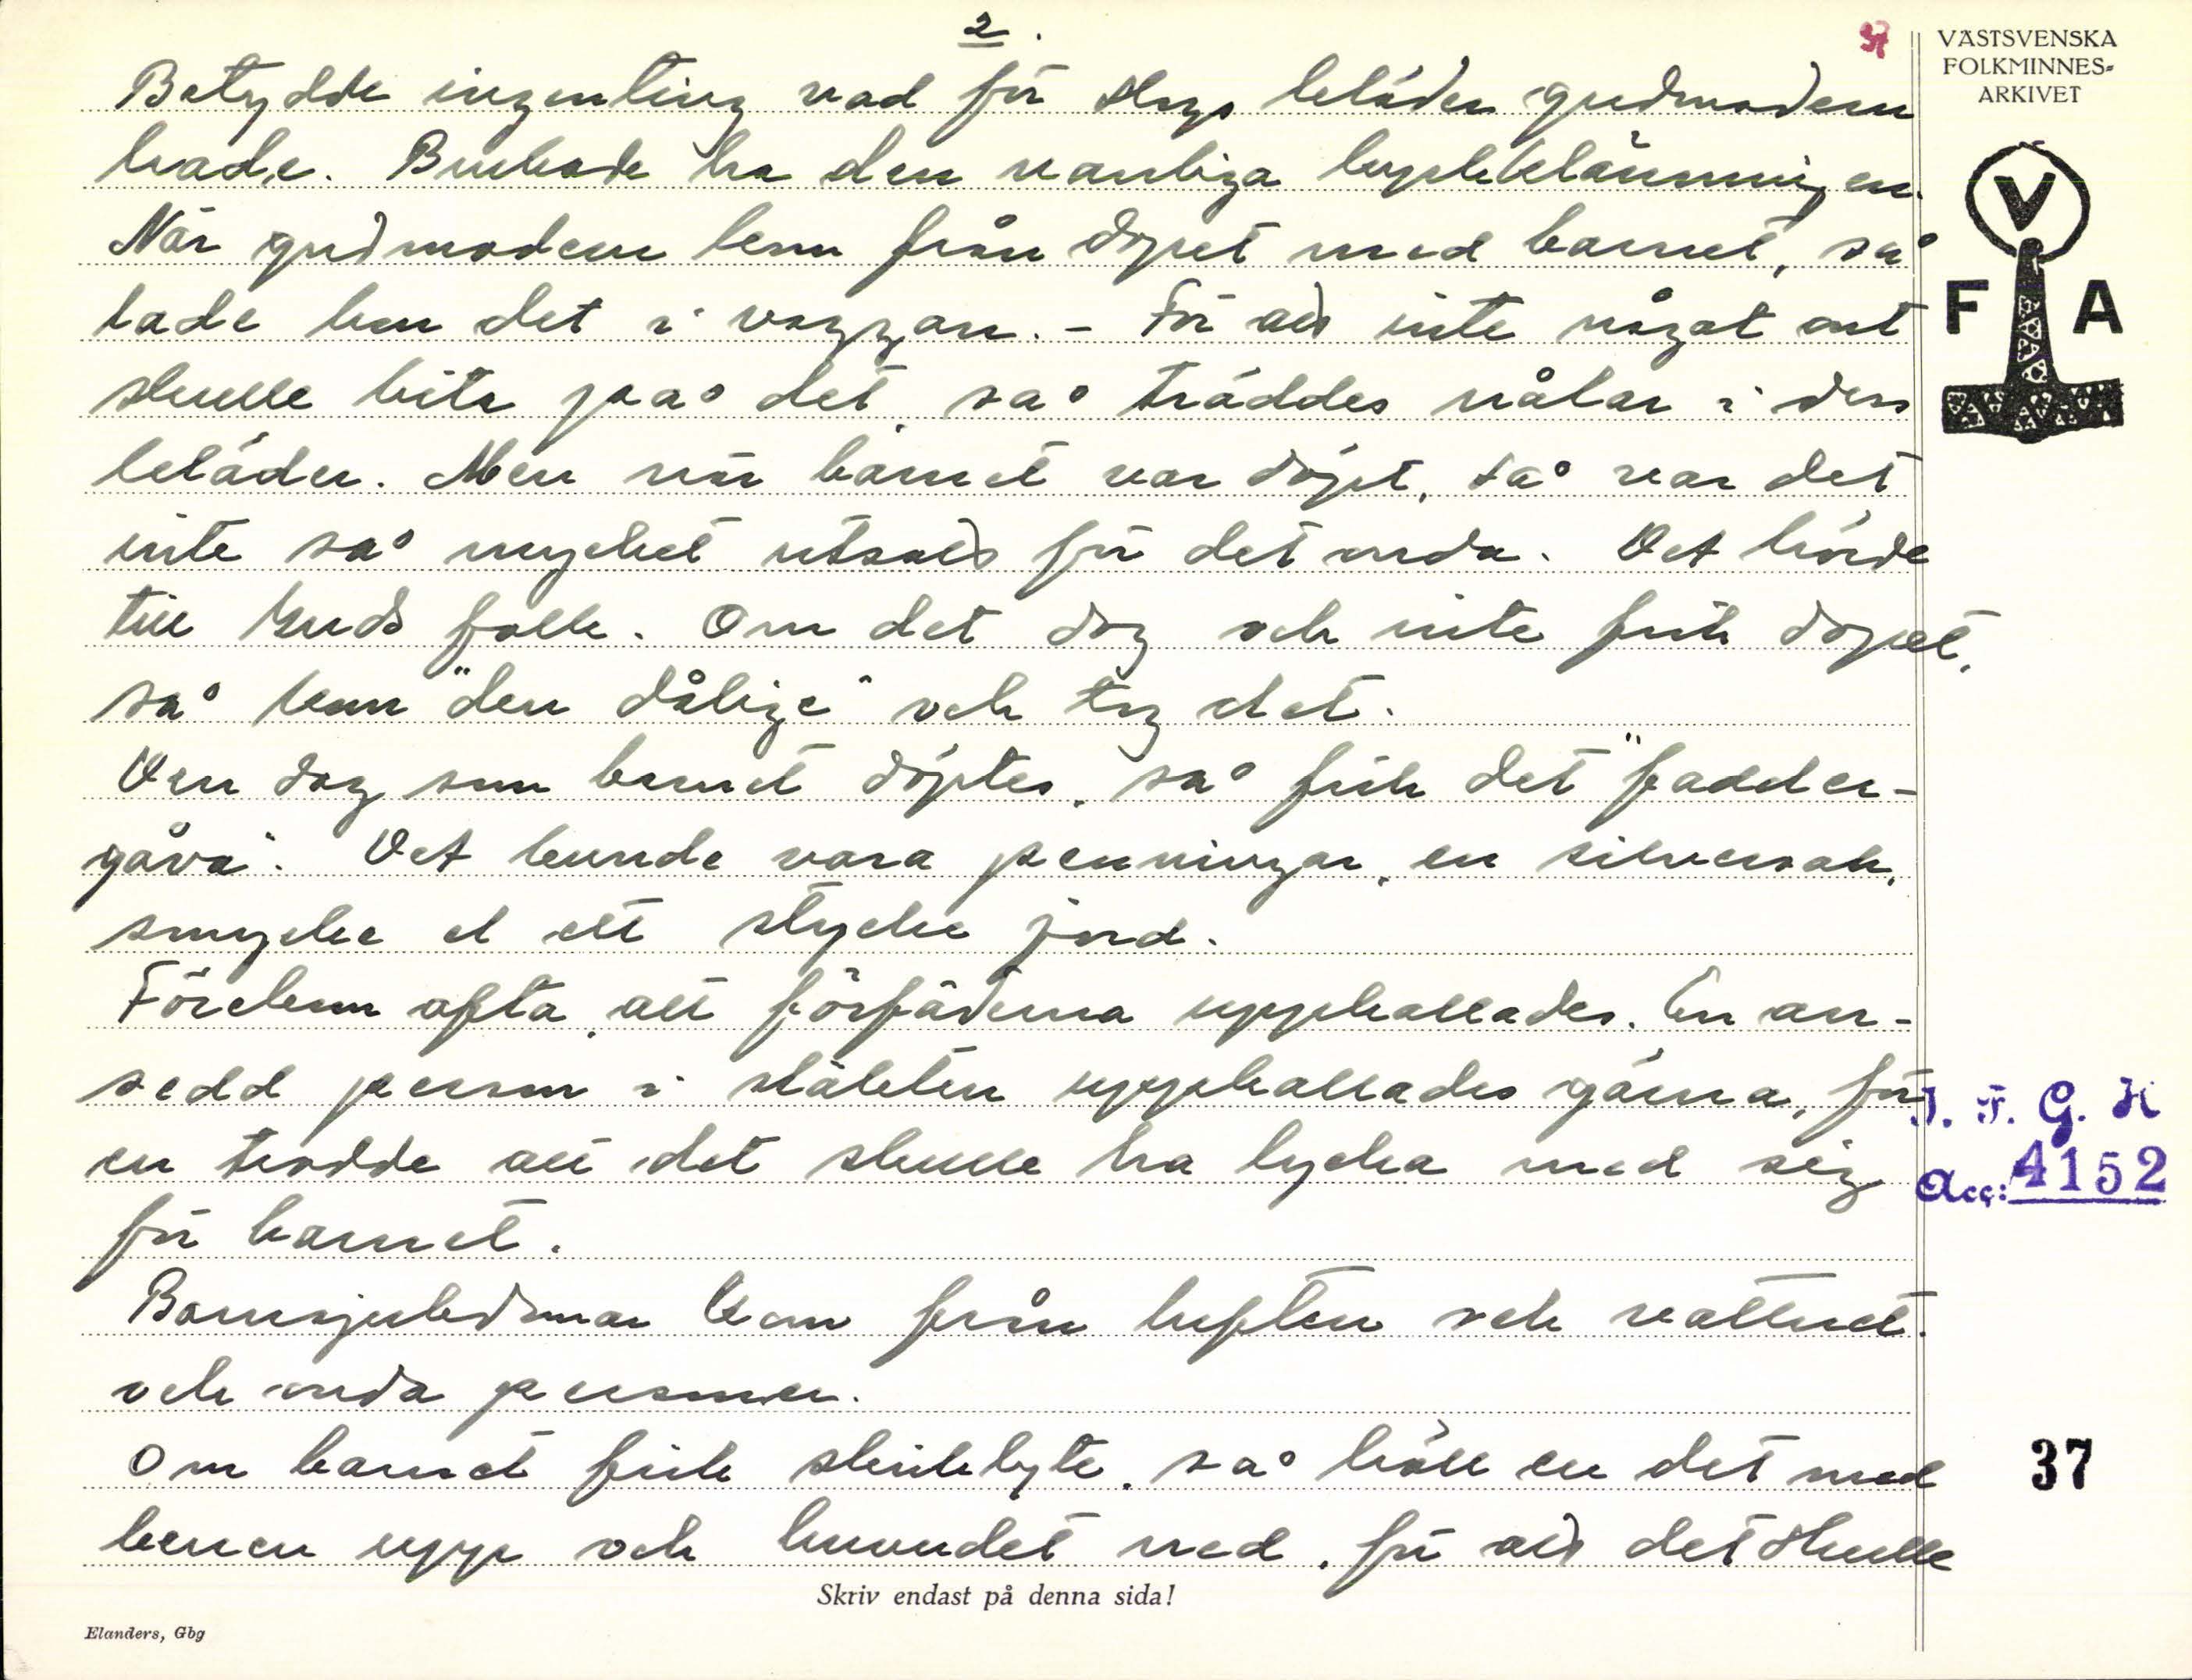 2.
VÄSTSVENSKA
FOLKMINNES-
ARKIVET
Betydde ingenting vad för slags kläder gudmodern
hade. Brukade ha den vanliga kyrkklänningen.
När gudmodern kom från dopet med barnet, så
lade hon det i vaggan. - För att inte något ont
skulle bita paa° det, sa° träddes nålar i dess
kläder. Men när barnet var döpt, sa° var det
inte sa° mycket utsatt för det onda. Det hörde
till Guds folk. Om det dog och inte fick dopet,
sa° kom "den dålige" och tog det.
Den dag som barnet döptes, sa° fick det "fadder-
gåva". Det kunde vara penningar, en silversak,
smycke el ett stycke jord.
Förekom ofta, att förfäderna uppkallades. En an-
sedd person i släkten uppkallades gärna, för
en trodde att det skulle ha lycka med sig
för barnet.
Barnsjukdomar kom från luften och vattnet.
och onda personer.
Om barnet fick skriklyte, sa° höll en det med
benen upp och huvudet ned, för att det skulle
V
F A
I. F. G. H
Acc: 4152
37
Skriv endast på denna sida!
Elanders, Gbg